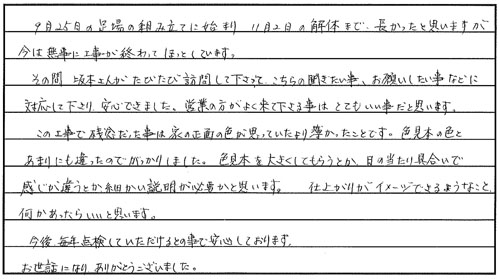 9月25日の足場の組み立てに始まり 11月2日の解体まで、長かったと思いますが
今は無事に工事が終わってほっとしています。
その間 坂本さんがたびたび訪問して下さって、こちらの聞きたい事、お願いしたい事などに
対応して下さり 安心できました、営業の方がよく来て下さる事は とてもいい事だと思います。
この工事で残念だった事は 家の正面の色が思っていたより薄かったことです。色見本の色と
あまりにも違ったのでがっかりしました。色見本を大きくしてもらうとか、日の当たり具合いで
感じが違うとか細かい説明が必要かと思います。 仕上がりがイメージできるようなこと、
何かあったらいいと思います。
今後、毎年点検していただけるとの事で安心しております。
お世話になり ありがとうございました。